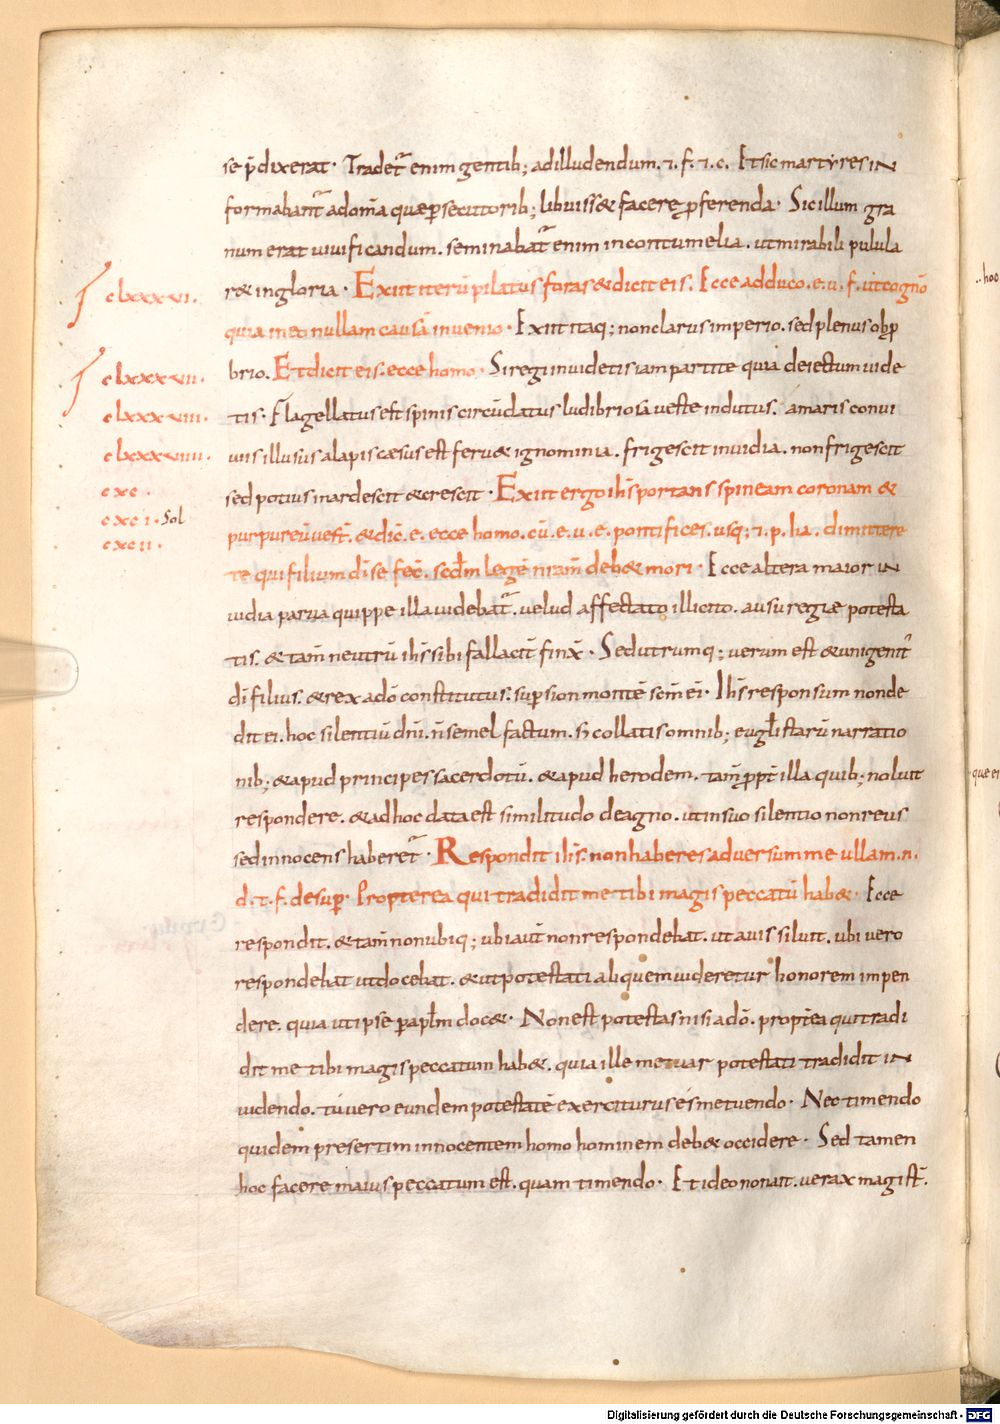 se p̄dixerat · Tradet̃ enim gentib; adilludendum .⁊. f. ⁊. c. Et sic martyres in
formabant̃ adom̄a quę p̱secutorib; libuiss& facere ꝓferenda · Sic illum gra
num erat vivificandum . seminabat̃ enim incontumelia . ut mirabili pulula
r& ingloria · Exiit iterū pilatus foras & dicit eis . Ecce adduco . e . u . f. ut cogno
clxxxvi.
quia in eo nullam causā invenio · Exiit itaq; non clarus imperio . sed plenus obp̱
brio . Et dicit eis . ecce homo · Si regi invidetis iam partite quia deiectum uide
clxxxvii.
tis · Flagellatus est spinis circūdatus ludibriosa veste indutus . amaris convi
clxxxviii.
uiis illusus alapis cæsus est feru& ignominia . frigescit invidia . non frigescit
clxxxviiii.
sed potius inardescit & crescit · Exiit ergo ih̄s portans spineam coronam &
cxc.
purpureū vest̄ . & dic̄ . e . ecce homo . cū . e . u . e . pontifices . usq; ⁊. p. ha . dimittere
cxci . Sol
te qui filium dī se fec̄ . scd̄m legē nr̄am deb& mori · Ecce altera maior in
cxcii.
vidia parva quippe illa videbat̃ . velud affectato illicito . ausu regiæ potesta
tis . & tam̄ neutrū ih̄s sibi fallacit̄ finx̄ · Sed utrumq; verum est & unigenit᾽
dī filius . & rex a dō constitutus . sup̱ sion montē scm̄ ei᾽ · Ih̄s responsum non de
dit ei . hoc silentiū dn̄i . n̄ semel factum . s; collatis omnib; eugl̄istarū narratio
nib; & apud principes sacerdotū . & apud herodem . tam̄ ꝓpt̄ illa quib; noluit
respondere . & adhoc data est similitudo de agno . ut in suo silentio non reus
sed innocens haberet̃ · Respondit ih̄s . non haberes adversum me ullam . n .
d . t . f . desup̱ · Propterea qui tradidit me tibi magis peccatū hab& · Ecce
respondit . & tam̄ non ubiq; ubi aut̄ non respondebat . ut avis siluit . ubi vero
respondebat ut docebat . & ut potestati aliquem videretur honorem impen
dere . quia ut ipse p̱ apl̄m doc& · Non est potestas nisi a dō . propt̄ea qui tradi
dit me tibi magis peccatum hab& . quia ille me tuae potestati tradidit in
uidendo . tu vero eundem potestatē exerciturus és metuendo · Nec timendo
quidem presertim innocentem homo hominem deb& occidere · Sed tamen
hoc facere maius peccatum est . quam timendo · Et ideo non ait . verax magist̄ .
Digitalisierung gefördert durch die Deutsche Forschungsgemeinschaft · DFG